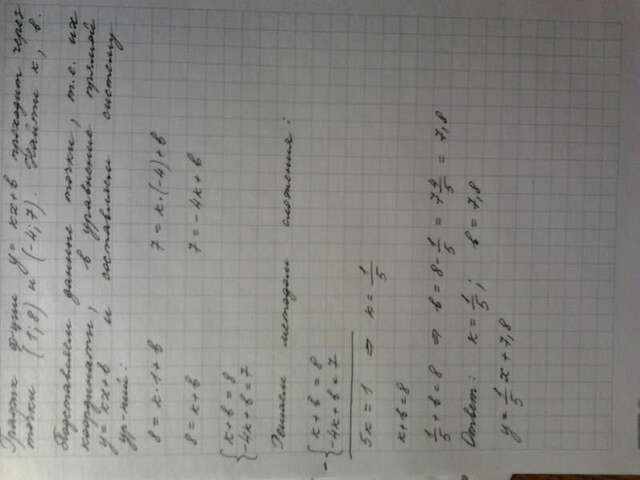 График ф-ции y = kx+b проходит через
точки (1; 8) и (-4; 7). Найти k, b.
Подставляем данные точки, т.е. их
координаты, в уравнение прямой
y = kx+b и составляем систему
ур-ний:
8 = k·1+b 7 = k·(-4)+b
8 = k+b 7 = -4k+b
{ k+b=8
{ -4k+b=7
Решаем методом сложения:
- { k+b=8
{ -4k+b=7
5k = 1 ⇒ k = 1/5
k+b=8
1/5 + b = 8 ⇒ b = 8 - 1/5 = 7 4/5 = 7,8
Ответ: k = 1/5; b = 7,8
y = 1/5 x + 7,8